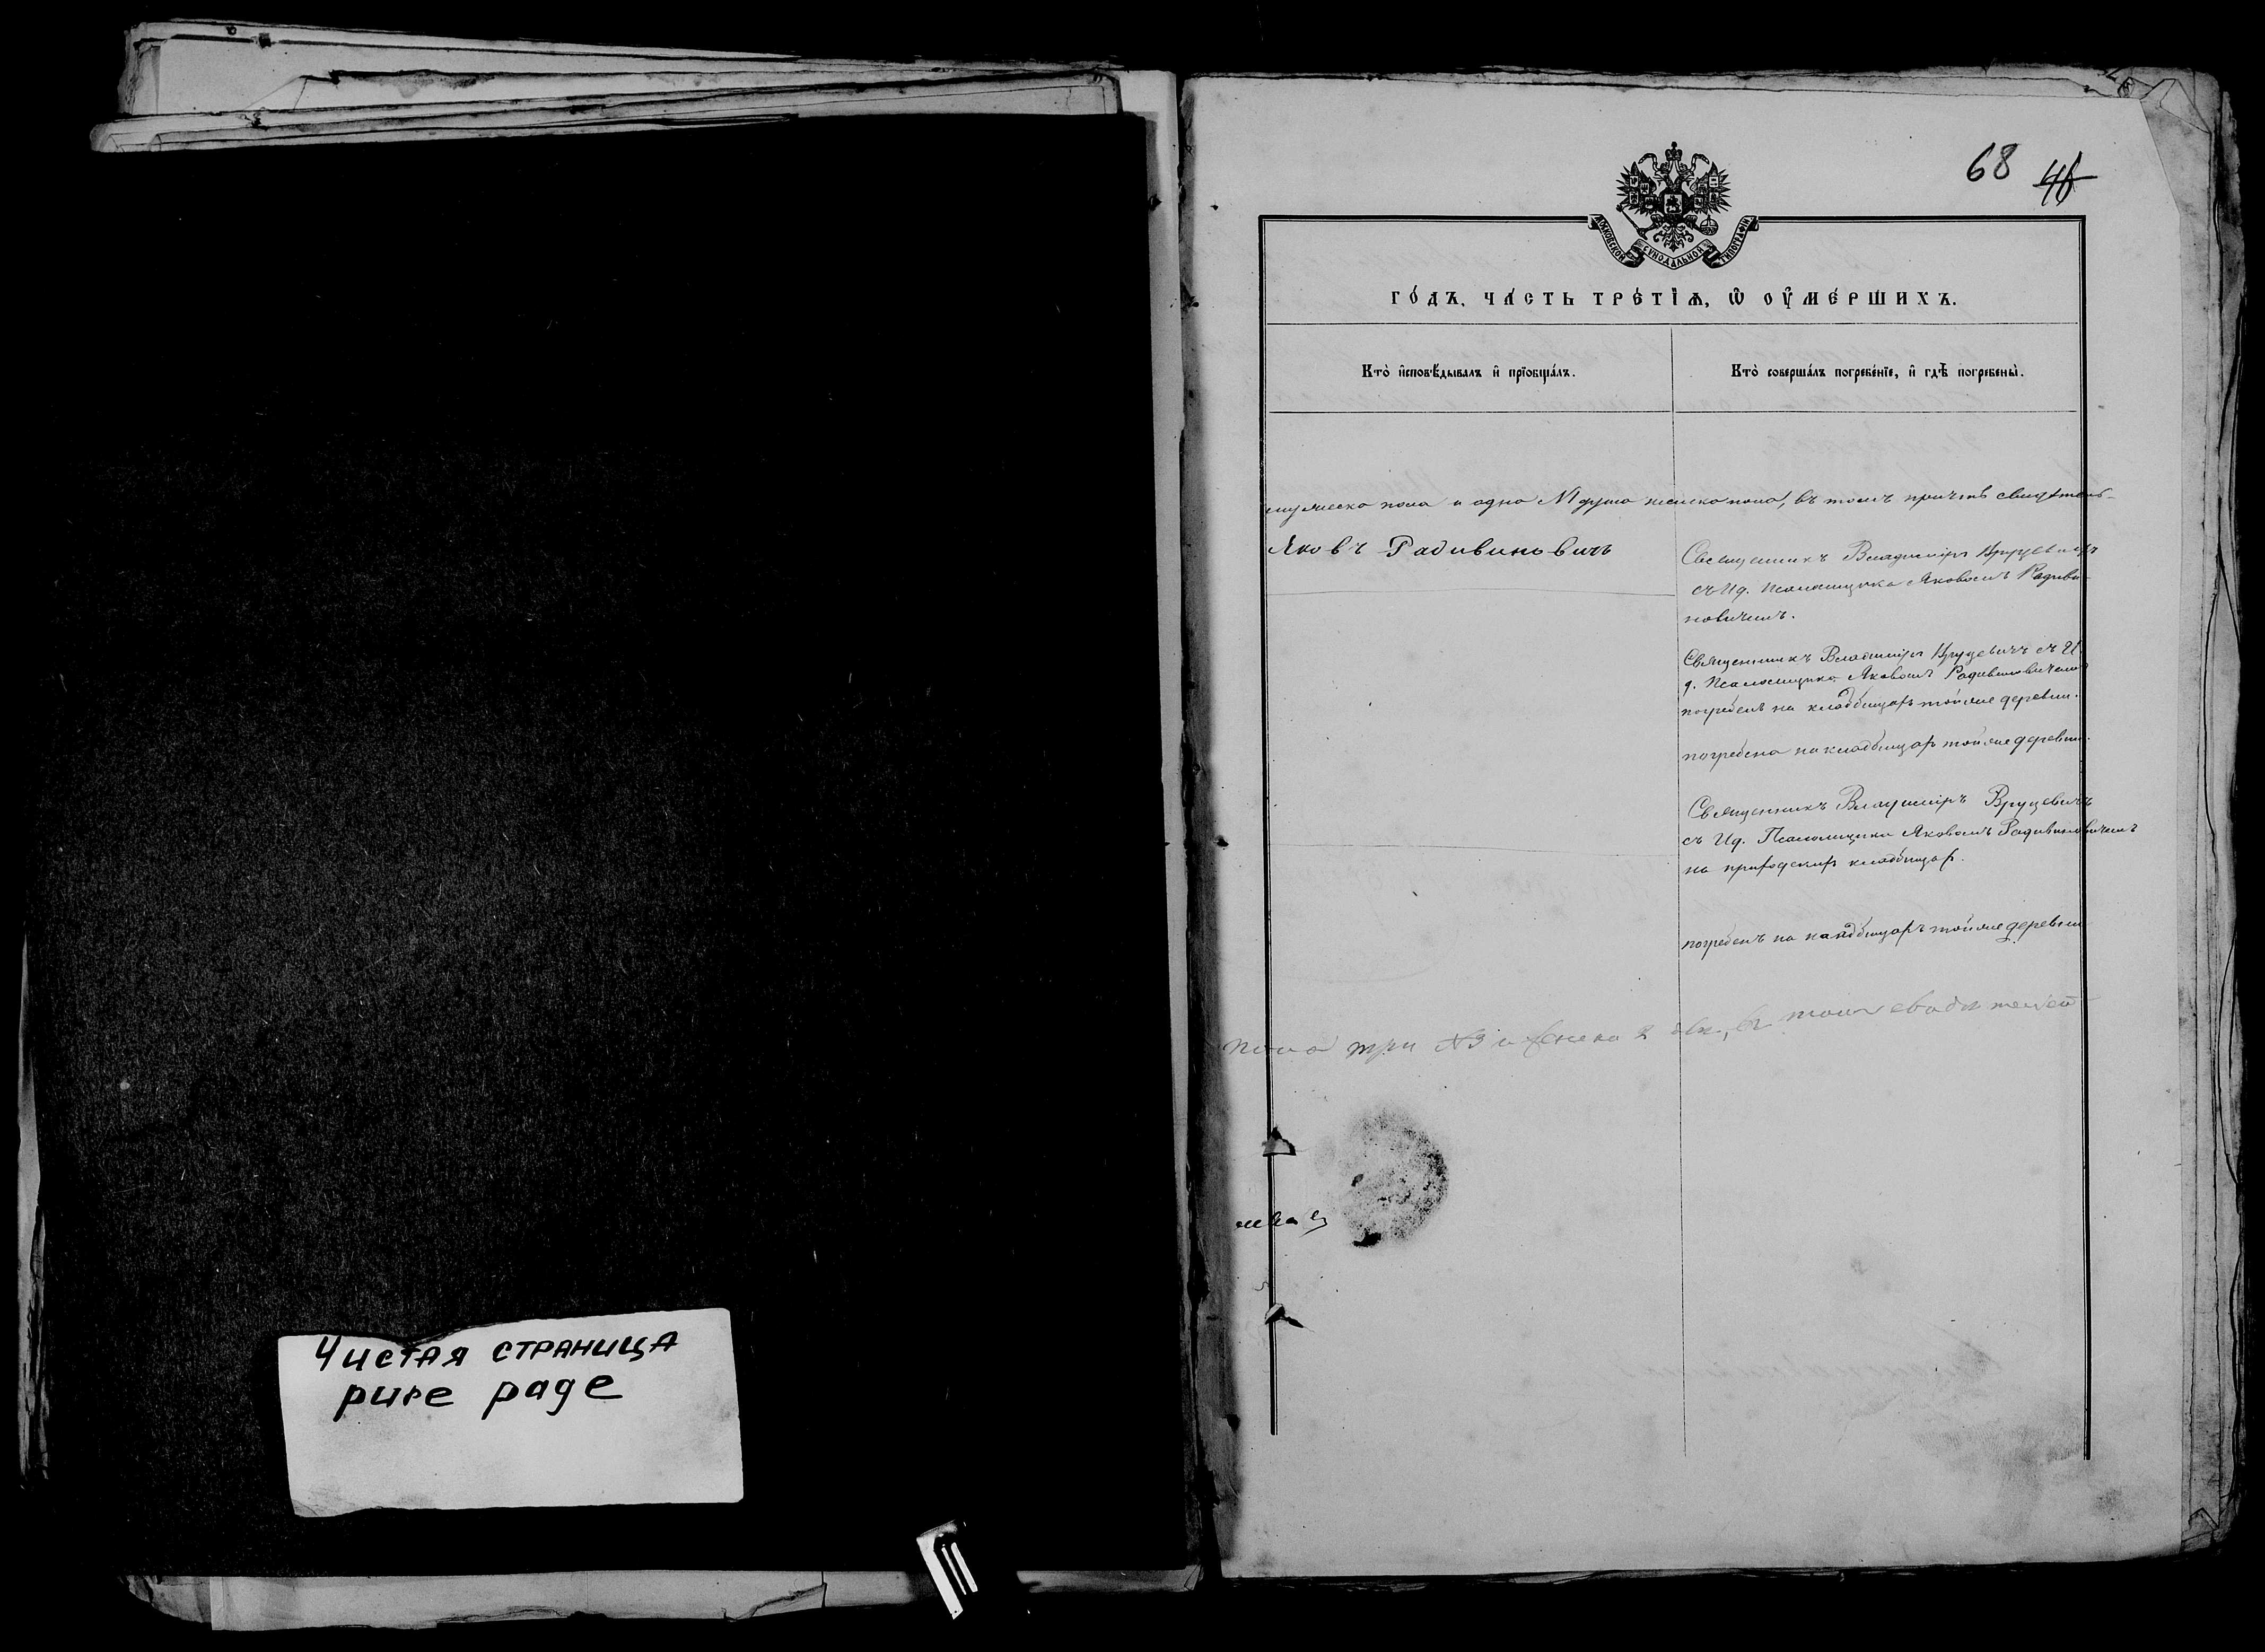 Чистая страница
pure page
68 46
МОСКОВСКОЙ СѴНОДАЛЬНОЙ ТИПОГРАФІИ
ГО́ДЪ, ЧА́СТЬ ТРЕ́ТІѦ, Ѡ҆ ОУ҆МЕ́РШИХЪ.
Кто̀ и҆сповѣ́дывалъ и҆ прїѡбща́лъ.
Кто̀ соверша́лъ погребе́нїе, и҆ гдѣ̀ погребены̀.
мужеска пола и одна №1 душа женска пола, въ томъ причтъ свидѣтель-
Яковъ Радивиновичъ
Священникъ Владиміръ Вруцевичъ
съ Ид. Псаломщика Яковомъ Радиви-
новичемъ.
Священникъ Владиміръ Вруцевичъ съ И.
д. Псаломщика Яковомъ Радивиновичемъ
погребенъ на кладбищахъ тойже деревни.
погребена на кладбищахъ тойже деревни.
Священникъ Владиміръ Вруцевичъ
съ Ид. Псаломщика Яковомъ Радивиновичемъ
на приходскихъ кладбищахъ.
погребенъ на кладбищахъ тойже деревни
пола три №3 и женска 2 въ томъ